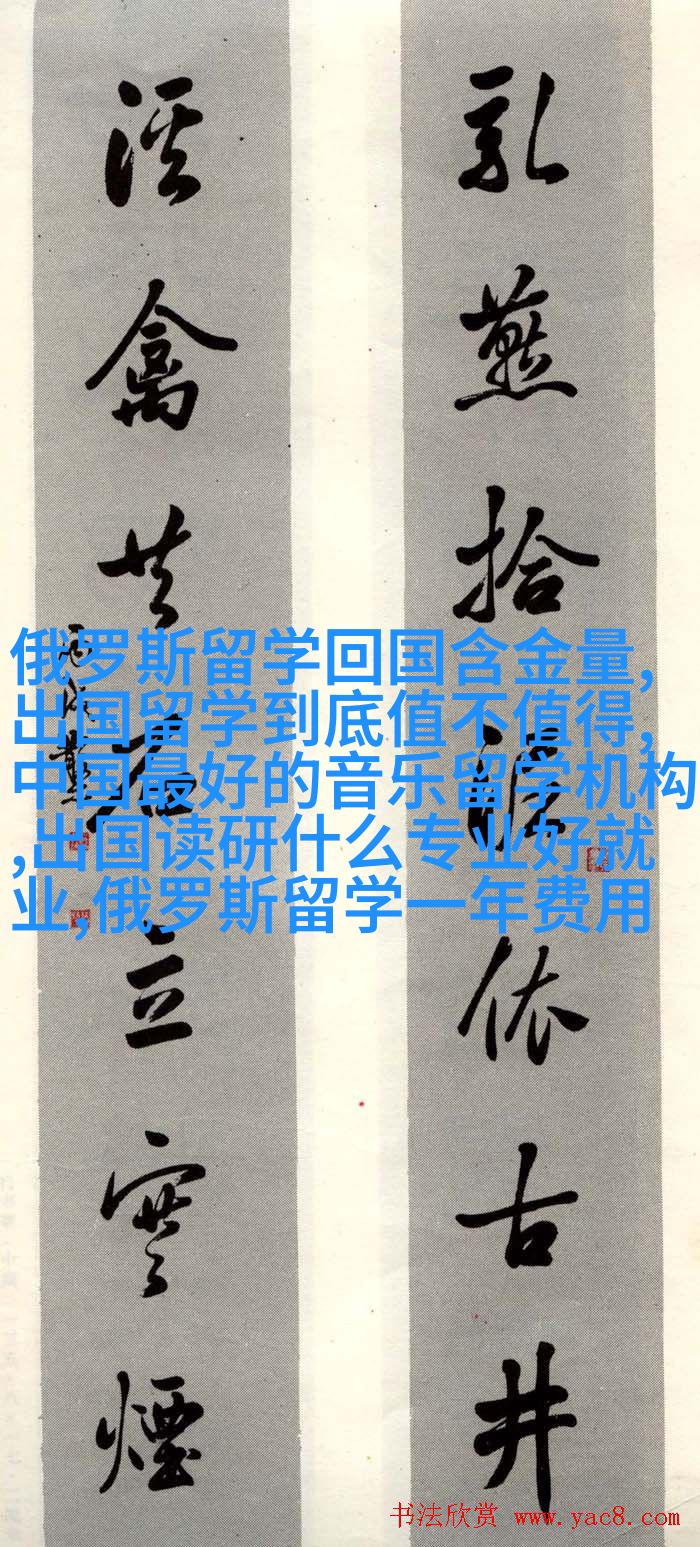 乳燕拾泥依古井
溪禽共立寒煙
俄罗斯留学回国含金量,
出国留学到底值不值得,
中国最好的音乐留学机构
,出国读研什么专业好就
业,俄罗斯留学一年费用
书法欣赏 www.yac8.com